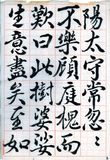 陽太守常忽〻
不樂顧庭槐而
歎曰此樹婆娑
生意盡矣至如